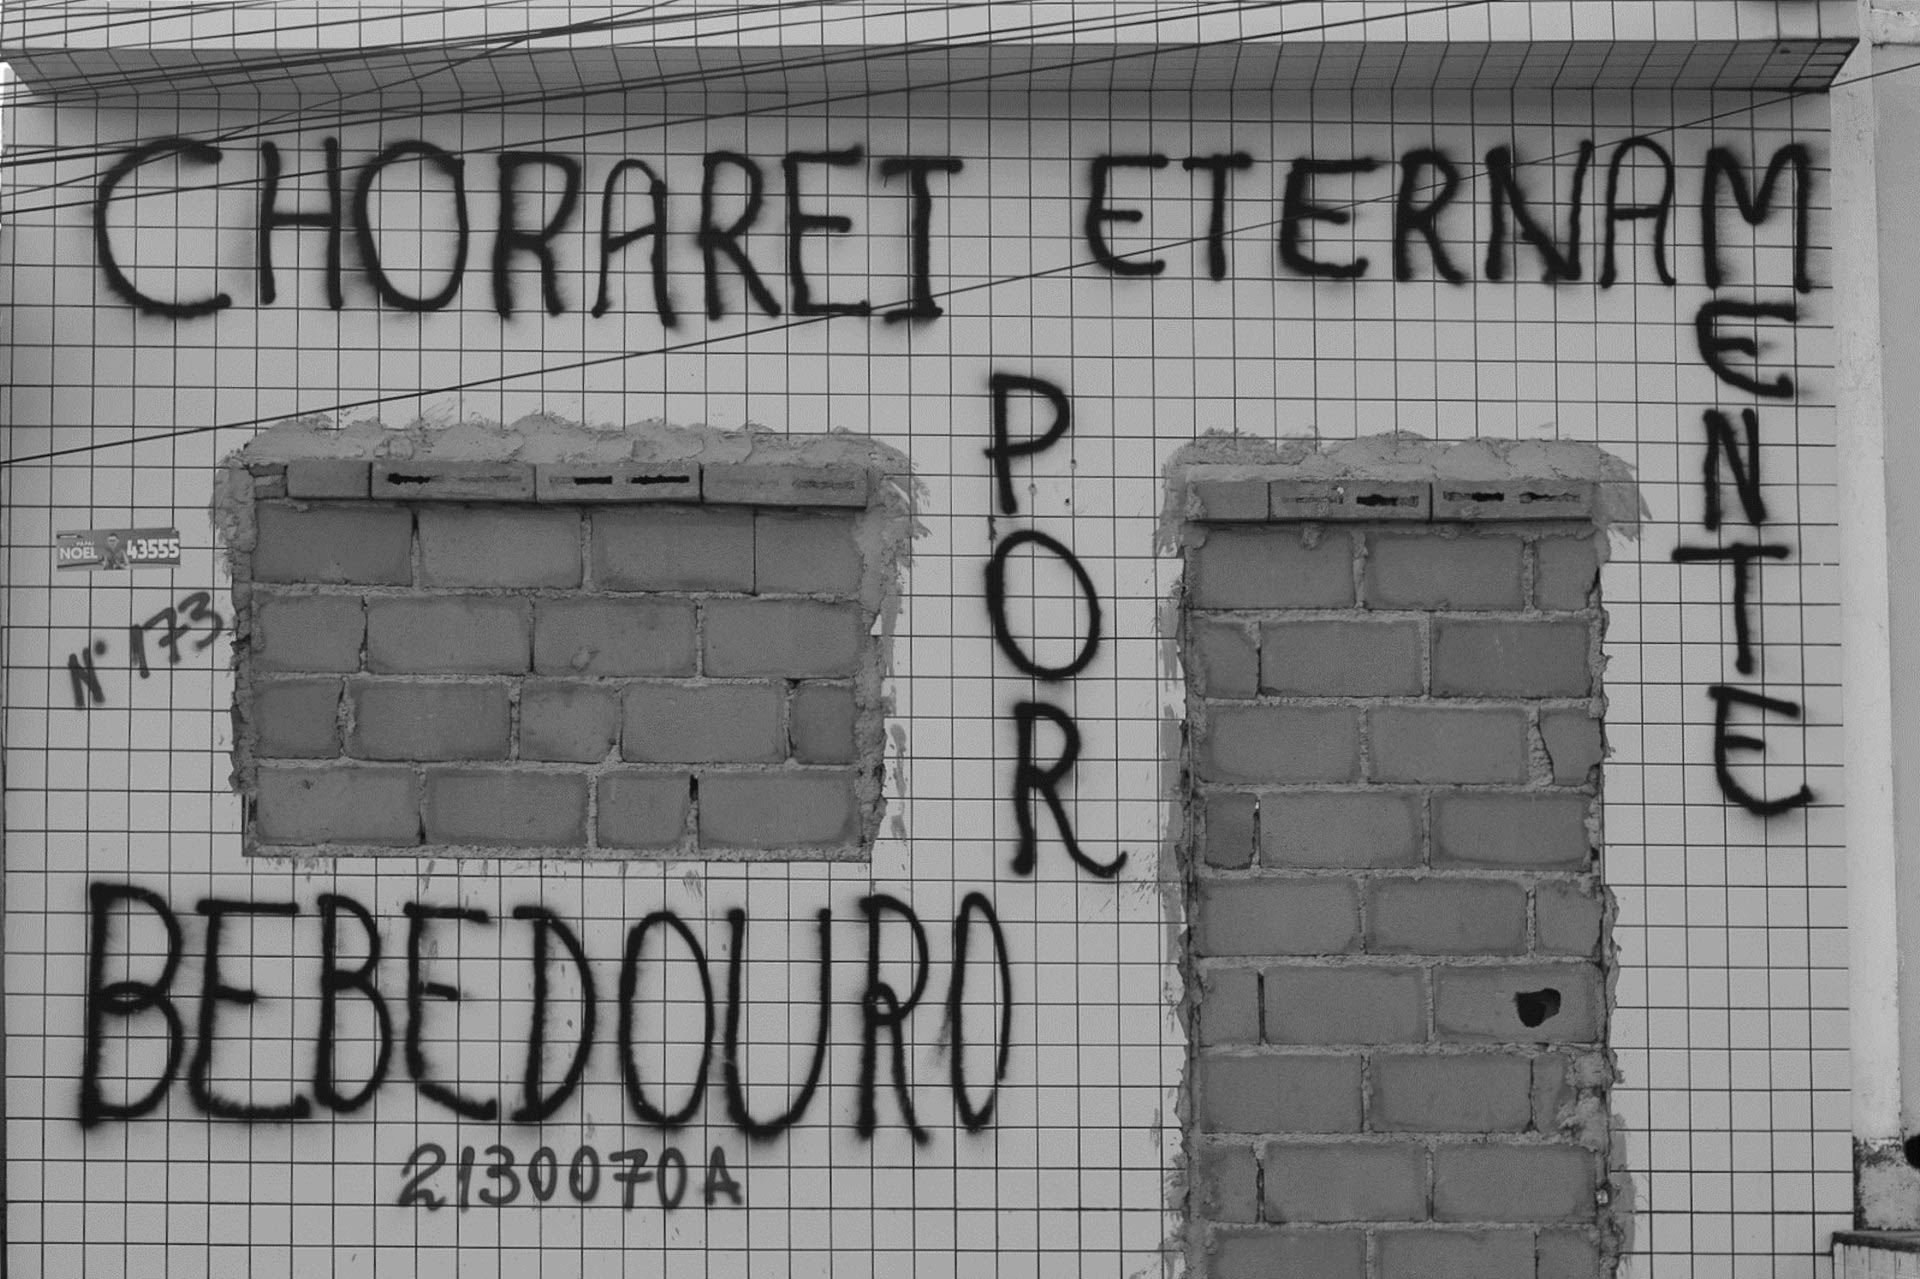 CHORAREI ETERNAMENTE
POR
PAPAI
NOEL 43555
N° 173
BEBEDOURO
2130070A